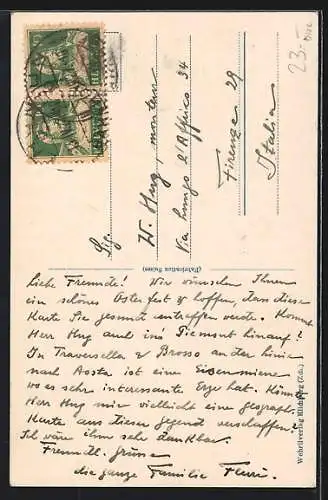 23.-
Sig.
W. Hug, monteur
Via lungo l'Affrico 34
Firenze 29
Italia
(Fabrication Suisse)
Wehrliverlag Kilchberg (Zch.)
Liebe Freunde! Wir wünschen Ihnen
ein schönes Osterfest & hoffen, dass diese
Karte Sie gesund antreffen werde. Kommt
Herr Hug auch ins Piemont hinauf?
In Traversella & Brosso an der Linie
nach Aosta ist eine Eisenmiene
wo es sehr interessante Erze hat. Könnte
Herr Hug mir vielleicht eine geograph.
Karte aus dieser Gegend verschaffen?
Ich wäre ihm sehr dankbar.
Freundl. Grüsse
die ganze Familie Flury.